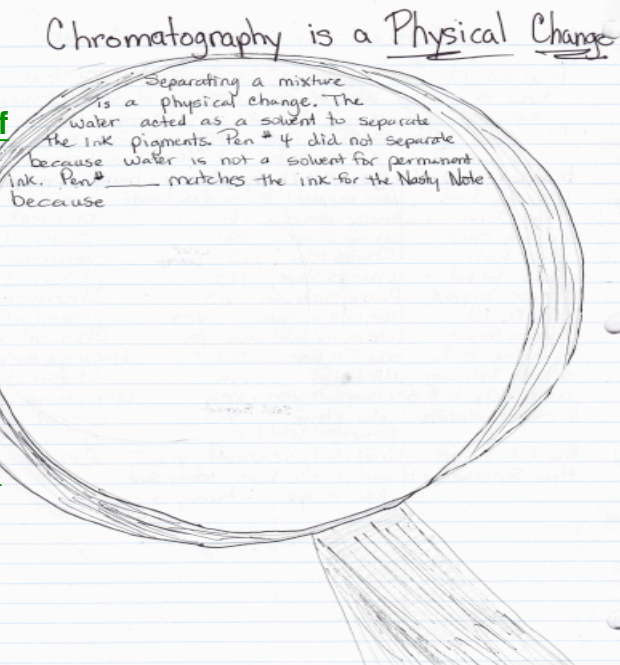 Chromatography is a Physical Change
f
Separating a mixture
is a physical change. The
water acted as a solvent to separate
the ink pigments. Pen # 4 did not separate
because water is not a solvent for permanent
ink. Pen# ____ matches the ink for the Nasty Note
because